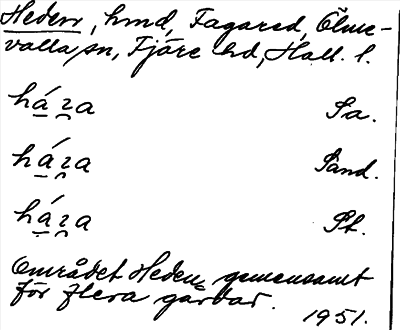 Heden, hmd, Fagared, Ölme-
valla sn, Fjäre hd, Hall. l.
há̱ɿ̯a Sa.
há̱ɿ̯a Sand.
há̱ɿ̯a St.
Området Heden gemensamt
för flera gårdar.
1951.